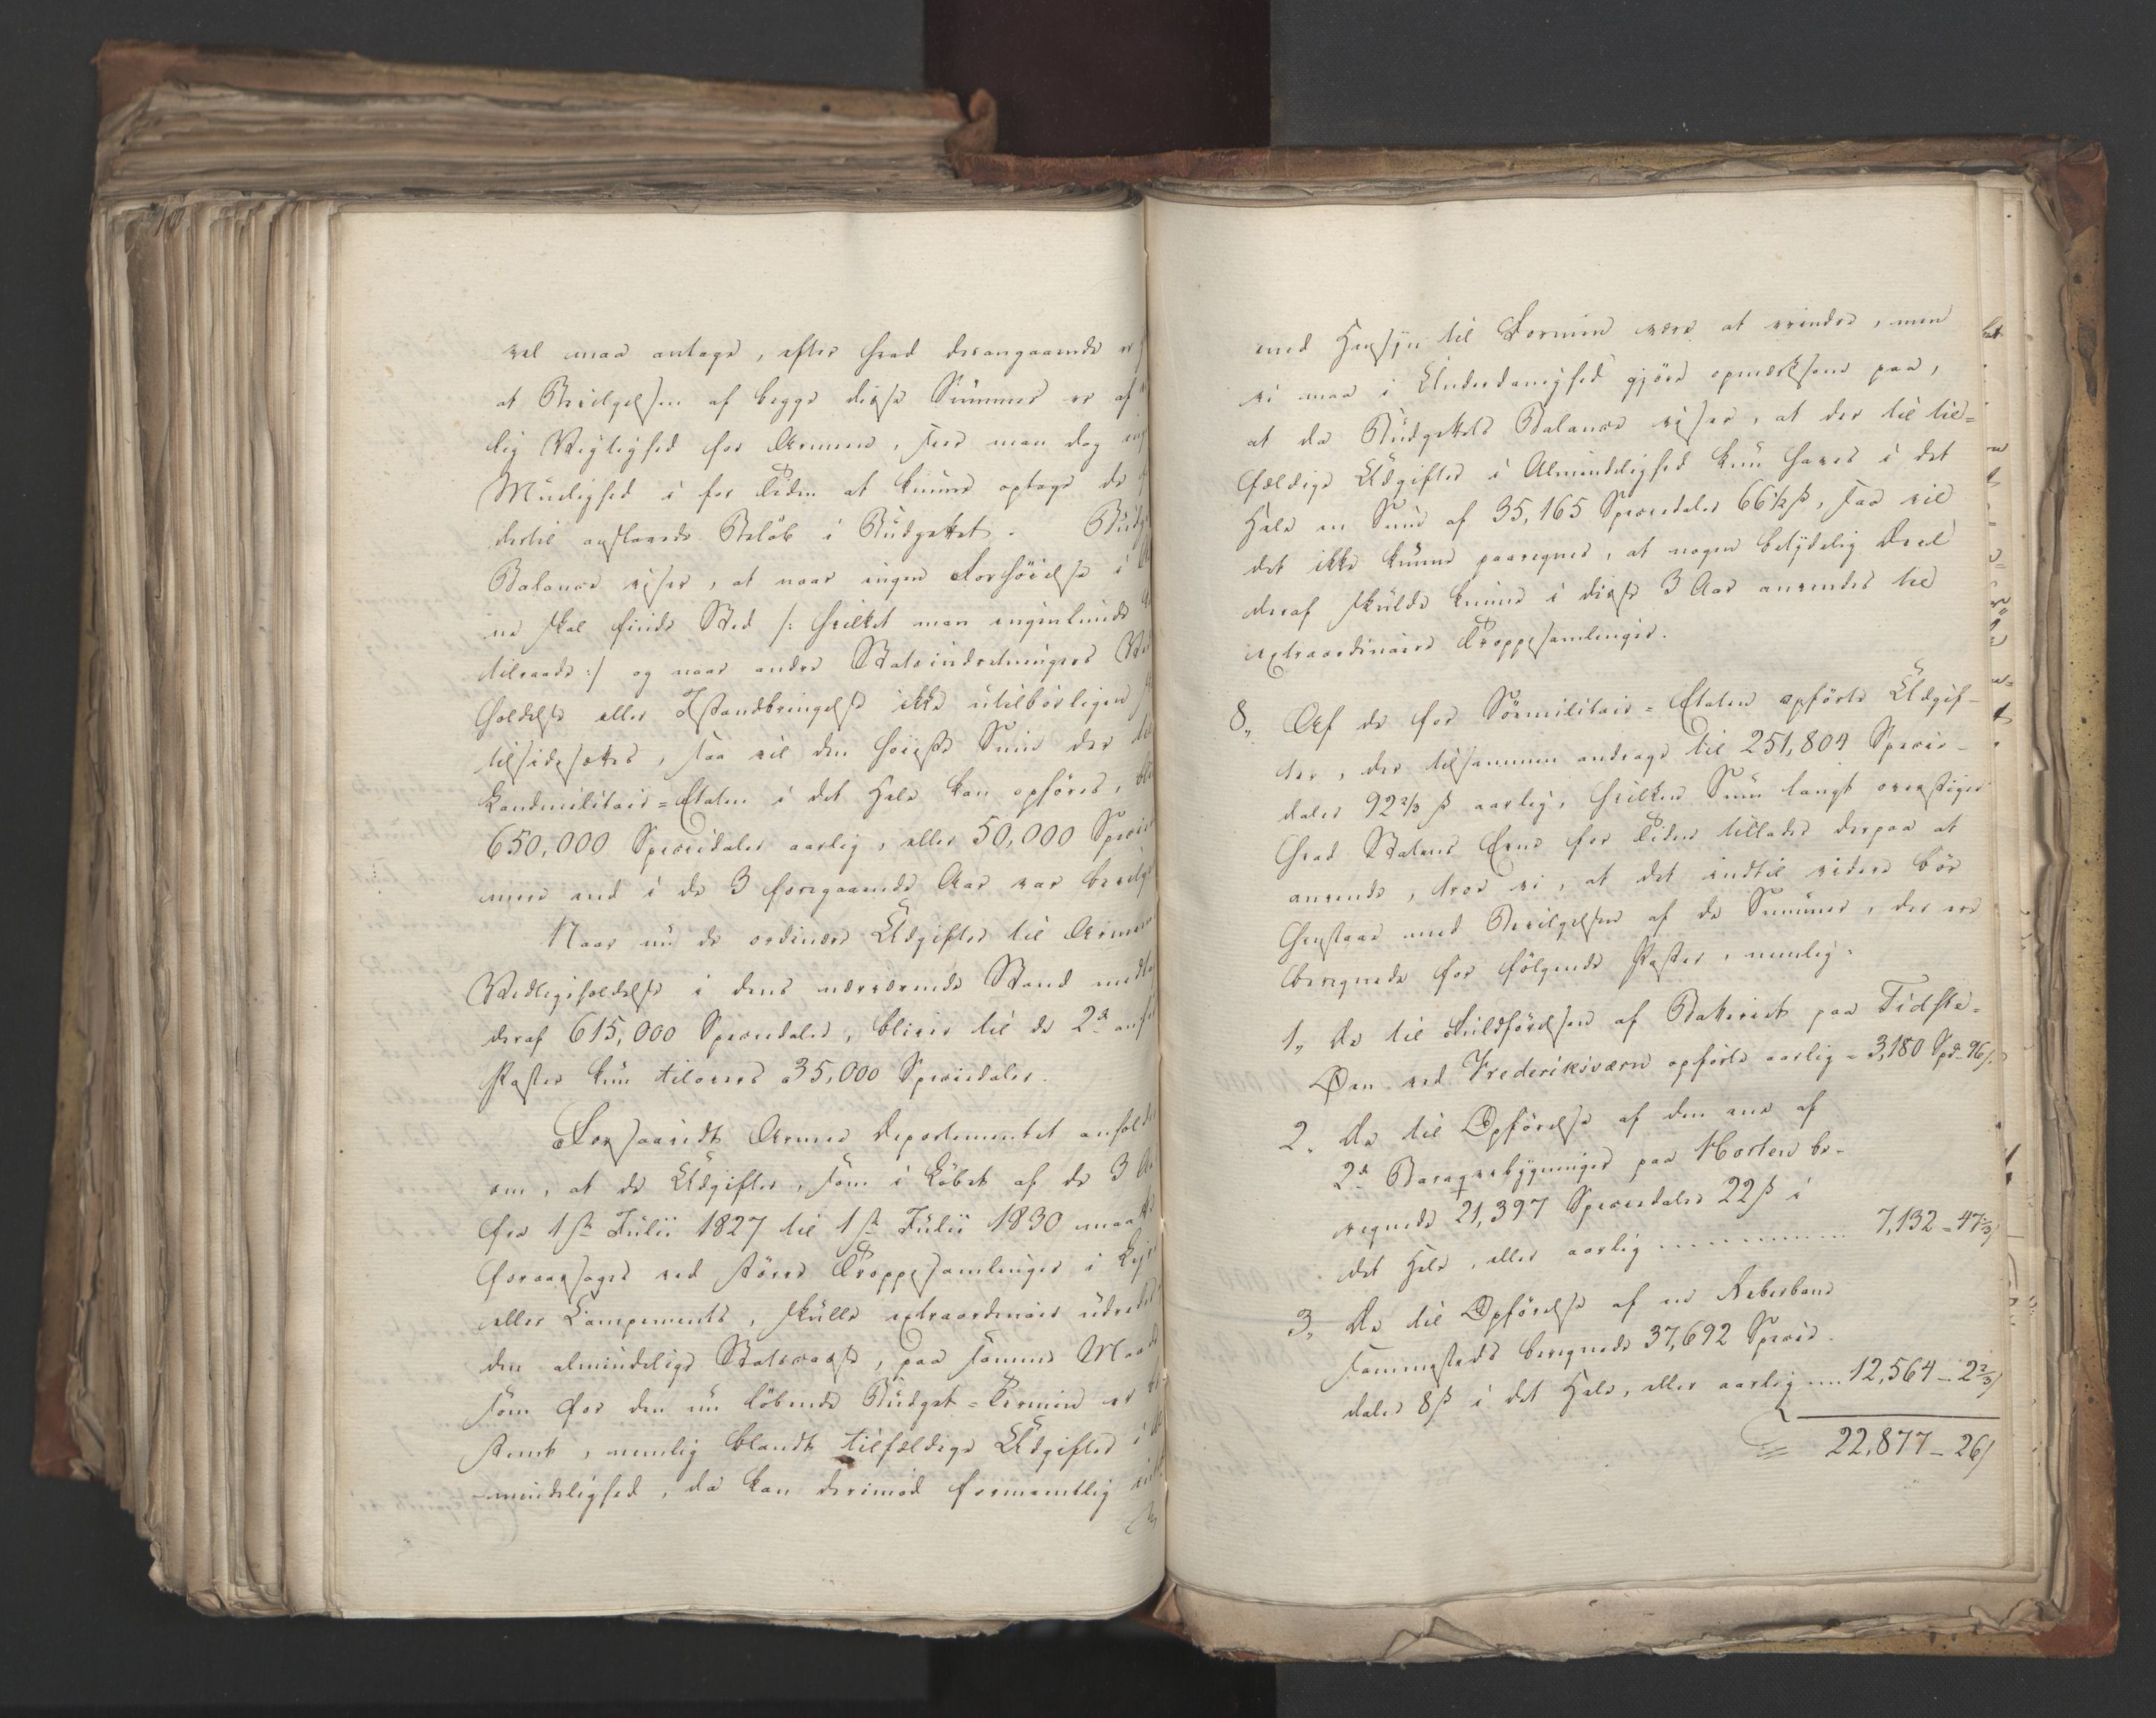 vel maa antage, efter hvad derangaaende er
at Bevilgelsen af begge disse Summer er af
lig Vigtighed for Armeen, seer man dog
Muelighed i for Tiden at kunne optage de
dertil anslaaede Beløb i Budgettet. Budg
Balance viser, at naar ingen Forhøielse i
ne skal finde Sted /: hvilket man ingenlunde
tilraade :/ og naar andre Statsindretningers Ved
holdelse eller Istandbringelse ikke utilbørligen
tilsidesættes, saa vil den høieste Sum der
Landmilitair-Etaten i det Hele kan opføres, bli
650,000 Speciedaler aarlig, eller 50,000 Specie
mere end i de 3 foregaaende Aar var bevilg
Naar nu de ordinære Udgifter til Armee
Vedligeholdelse i dens nærværende Stand medta
deraf 615,000 Speciedaler, bliver til de 2de anf
Poster kun tilovers 35,000 Speciedaler.
Forsaavidt Armee Departementet anhold
om, at de Udgifter, som i Løbet af de 3 A
fra 1ste Julii 1827 til 1ste Julii 1830 maatte
foraarsages ved større Troppesamlinger i Lejr
eller Campements, skulle extraordinair udredes
den almindelige Statscasse, paa samme Maade
som for den nu løbende Budget-Termin er
stemt, nemlig blandt tilfældige Udgifter i
mindelighed, da kan derimod formeentlig
med Hensyn til Formen være at erindre, men
vi maa i Underdanighed gjøre opmærksom paa,
at da Budgettets Balance viser, at der til til-
fældige Udgifter i Almindelighed kun haves i det
Hele en Sum af 35,165 Speciedaler 66 1/2 ß, saa vil
det ikke kunne paaregnes, at nogen betydelig Deel
deraf skulde kunne i disse 3 Aar anvendes til
extraordinaire Troppesamlinger.
8., Af de for Sømilitair-Etaten opførte Udgif-
ter, der tilsammen andrage til 251,804 Specie-
daler 92 2/3 ß aarlig, hvilken Sum langt overstiger
hvad Statens Evne for Tiden tillader derpaa at
anvende, troe vi, at det indtil videre bør
henstaae med Bevilgelsen af de Summer, der ere
beregnede for følgende Poster, nemlig:
1., De til Fuldførelsen af Batteriet paa Tidste-
Øen ved Frederiksværn opførte aarlig = 3,180 Spd. 96 /.
2., De til Opførelse af den ene af
2de Baraquebygninger paa Horten be-
regnede 21,397 Speciedaler 22 ß i
det Hele, eller aarlig .............. 7,132 - 47 1/3 /
3., De til Opførelse af en Reberbane
sammesteds beregnede 37,692 Specie-
daler 8 ß i det Hele, eller aarlig .... 12,564 - 2 2/3 /
= 22,877 - 26 /